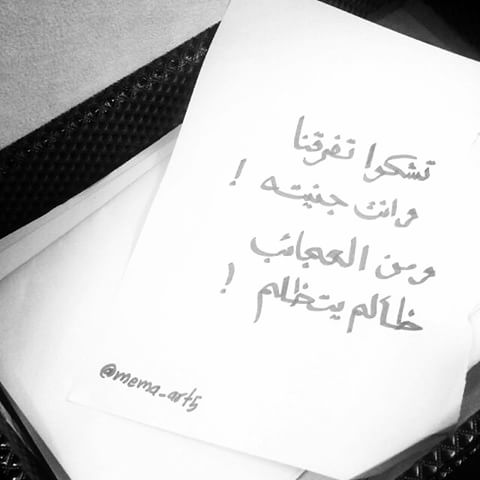 تشكوا تفرقنا
وانت جنيته !
ومن العجائب
ظالم يتظلم !
@mema_art5